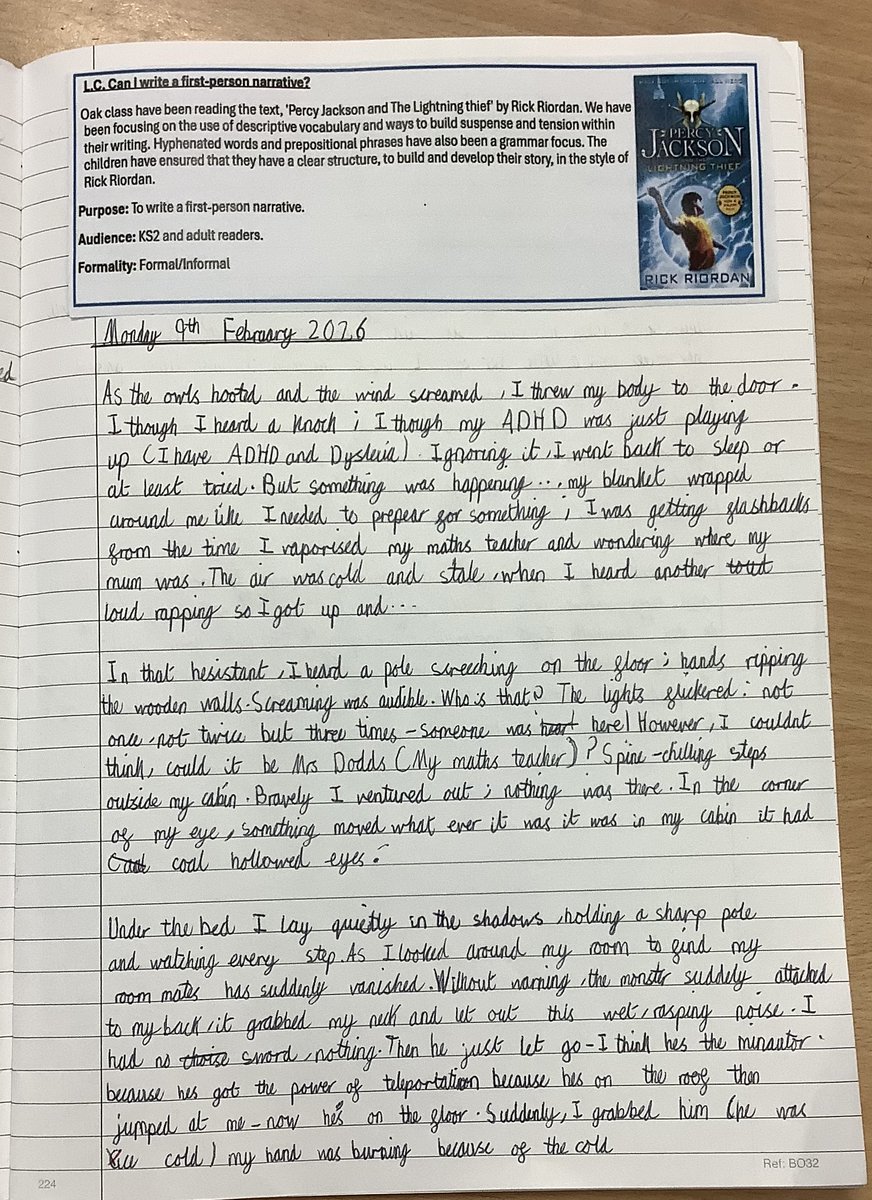 L.C. Can I write a first-person narrative?
Oak class have been reading the text, 'Percy Jackson and The Lightning thief' by Rick Riordan. We have
been focusing on the use of descriptive vocabulary and ways to build suspense and tension within
their writing. Hyphenated words and prepositional phrases have also been a grammar focus. The
children have ensured that they have a clear structure, to build and develop their story, in the style of
Rick Riordan.
Purpose: To write a first-person narrative.
Audience: KS2 and adult readers.
Formality: Formal/Informal
PERCY
JACKSON
LIGHTNING THIEF
RICK RIORDAN
Monday 9th February 2026
As the owls hooted and the wind screamed, I threw my body to the door.
I though I heard a knock; I though my ADHD was just playing
up (I have ADHD and Dyslexia). Ignoring it, I went back to sleep or
at least tried. But something was happening..., my blanket wrapped
around me like I needed to prepear for something; I was getting flashbacks
from the time I vaporised my maths teacher and wondering where my
mum was. The air was cold and stale, when I heard another
loud rapping so I got up and...
In that hesistant, I heard a pole screeching on the floor; hands ripping
the wooden walls. Screaming was audible. Who is that? The lights flickered: not
once, not twice but three times - someone was here! However, I couldnt
think, could it be Mrs Dodds (My maths teacher)? Spine-chilling steps
outside my cabin. Bravely I ventured out; nothing was there. In the corner
of my eye, something moved what ever it was it was in my cabin it had
coal hollowed eyes.
Under the bed I lay quietly in the shadows, holding a sharp pole
and watching every step. As I looked around my room to find my
room mates has suddenly vanished. Without warning, the monster suddely attached
to my back, it grabbed my neck and let out this wet, rasping noise. I
had no sword, nothing. Then he just let go - I think hes the minautor.
because hes got the power of teleportation because hes on the roof then
jumped at me - now he's on the floor. Suddenly, I grabbed him (he was
ice cold) my hand was burning because of the cold
224
Ref: BO32